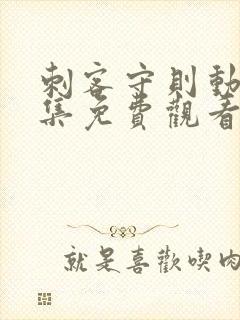 刺客守則動
集免費觀看
就是喜歡喫肉